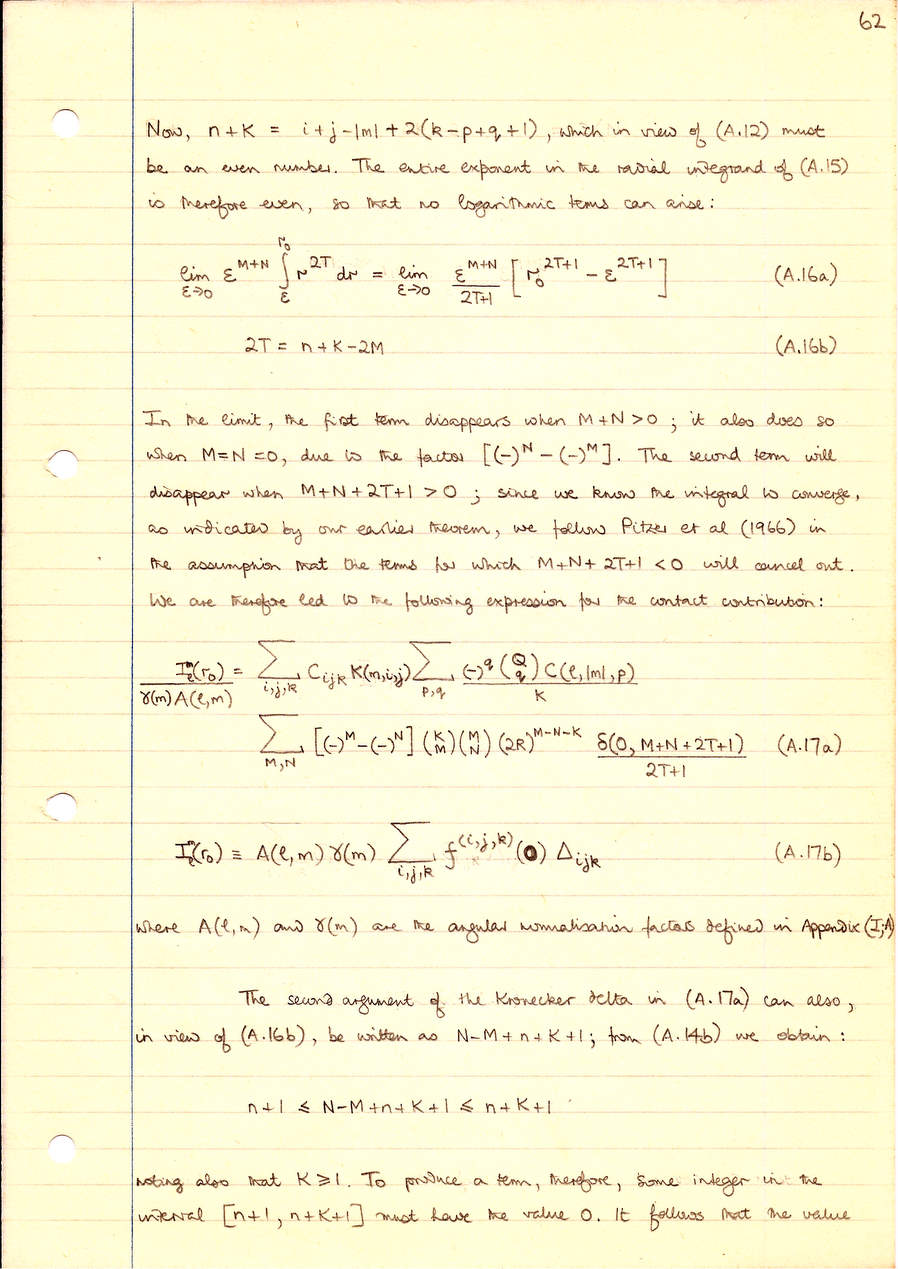 62
Now, n+K = i+j-|m|+2(k-p+q+1), which in view of (A.12) must
be an even number. The entire exponent in the radial integrand of (A.15)
is therefore even, so that no logarithmic terms can arise:
lim_{ε→0} ε^{M+N} ∫_ε^{r_0} r^{2T} dr = lim_{ε→0} ε^{M+N}/(2T+1) [r_0^{2T+1} - ε^{2T+1}] (A.16a)
2T = n+K-2M (A.16b)
In the limit, the first term disappears when M+N>0; it also does so
when M=N=0, due to the factor [(-)^N-(-)^M]. The second term will
disappear when M+N+2T+1>0; since we know the integral to converge,
as indicated by our earlier theorem, we follow Pitzer et al (1966) in
the assumption that the terms for which M+N+2T+1<0 will cancel out.
We are therefore led to the following expression for the contact contribution:
I_ℓ^m(r_0)/(γ(m)A(ℓ,m)) = ∑_{i,j,k} C_{ijk} K(m,i,j) ∑_{p,q} (-)^q (Q q) C(ℓ,|m|,p)/K
∑_{M,N} [(-)^M-(-)^N] (K M)(M N) (2R)^{M-N-K} δ(0, M+N+2T+1)/(2T+1) (A.17a)
I_ℓ^m(r_0) ≡ A(ℓ,m) γ(m) ∑_{i,j,k} f^{(i,j,k)}(0) Δ_{ijk} (A.17b)
where A(ℓ,m) and γ(m) are the angular normalisation factors defined in Appendix (I;A)
The second argument of the Kronecker delta in (A.17a) can also,
in view of (A.16b), be written as N-M+n+K+1; from (A.14b) we obtain:
n+1 ≤ N-M+n+K+1 ≤ n+K+1
noting also that K≥1. To produce a term, therefore, some integer in the
interval [n+1, n+K+1] must have the value 0. It follows that the value